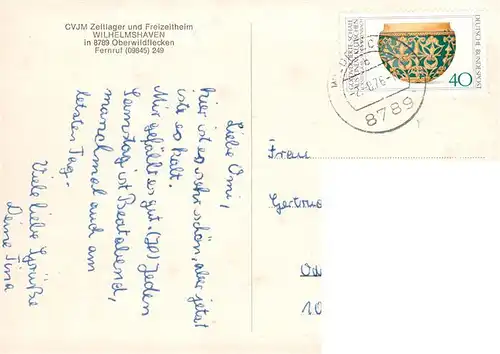 CVJM Zeltlager und Freizeitheim
WILHELMSHAVEN
in 8789 Oberwildflecken
Fernruf (09845) 249
Liebe Omi,
hier ist es sehr schön, aber jetzt
ist es kalt.
Mir gefällt es gut. (Jo) Jeden
Samstag ist Beatabend,
manchmal auch am
letzten Tag.
Viele liebe Grüße
Deine Tina
DEUTSCHE BUNDESPOST
40
8789
Frau
10